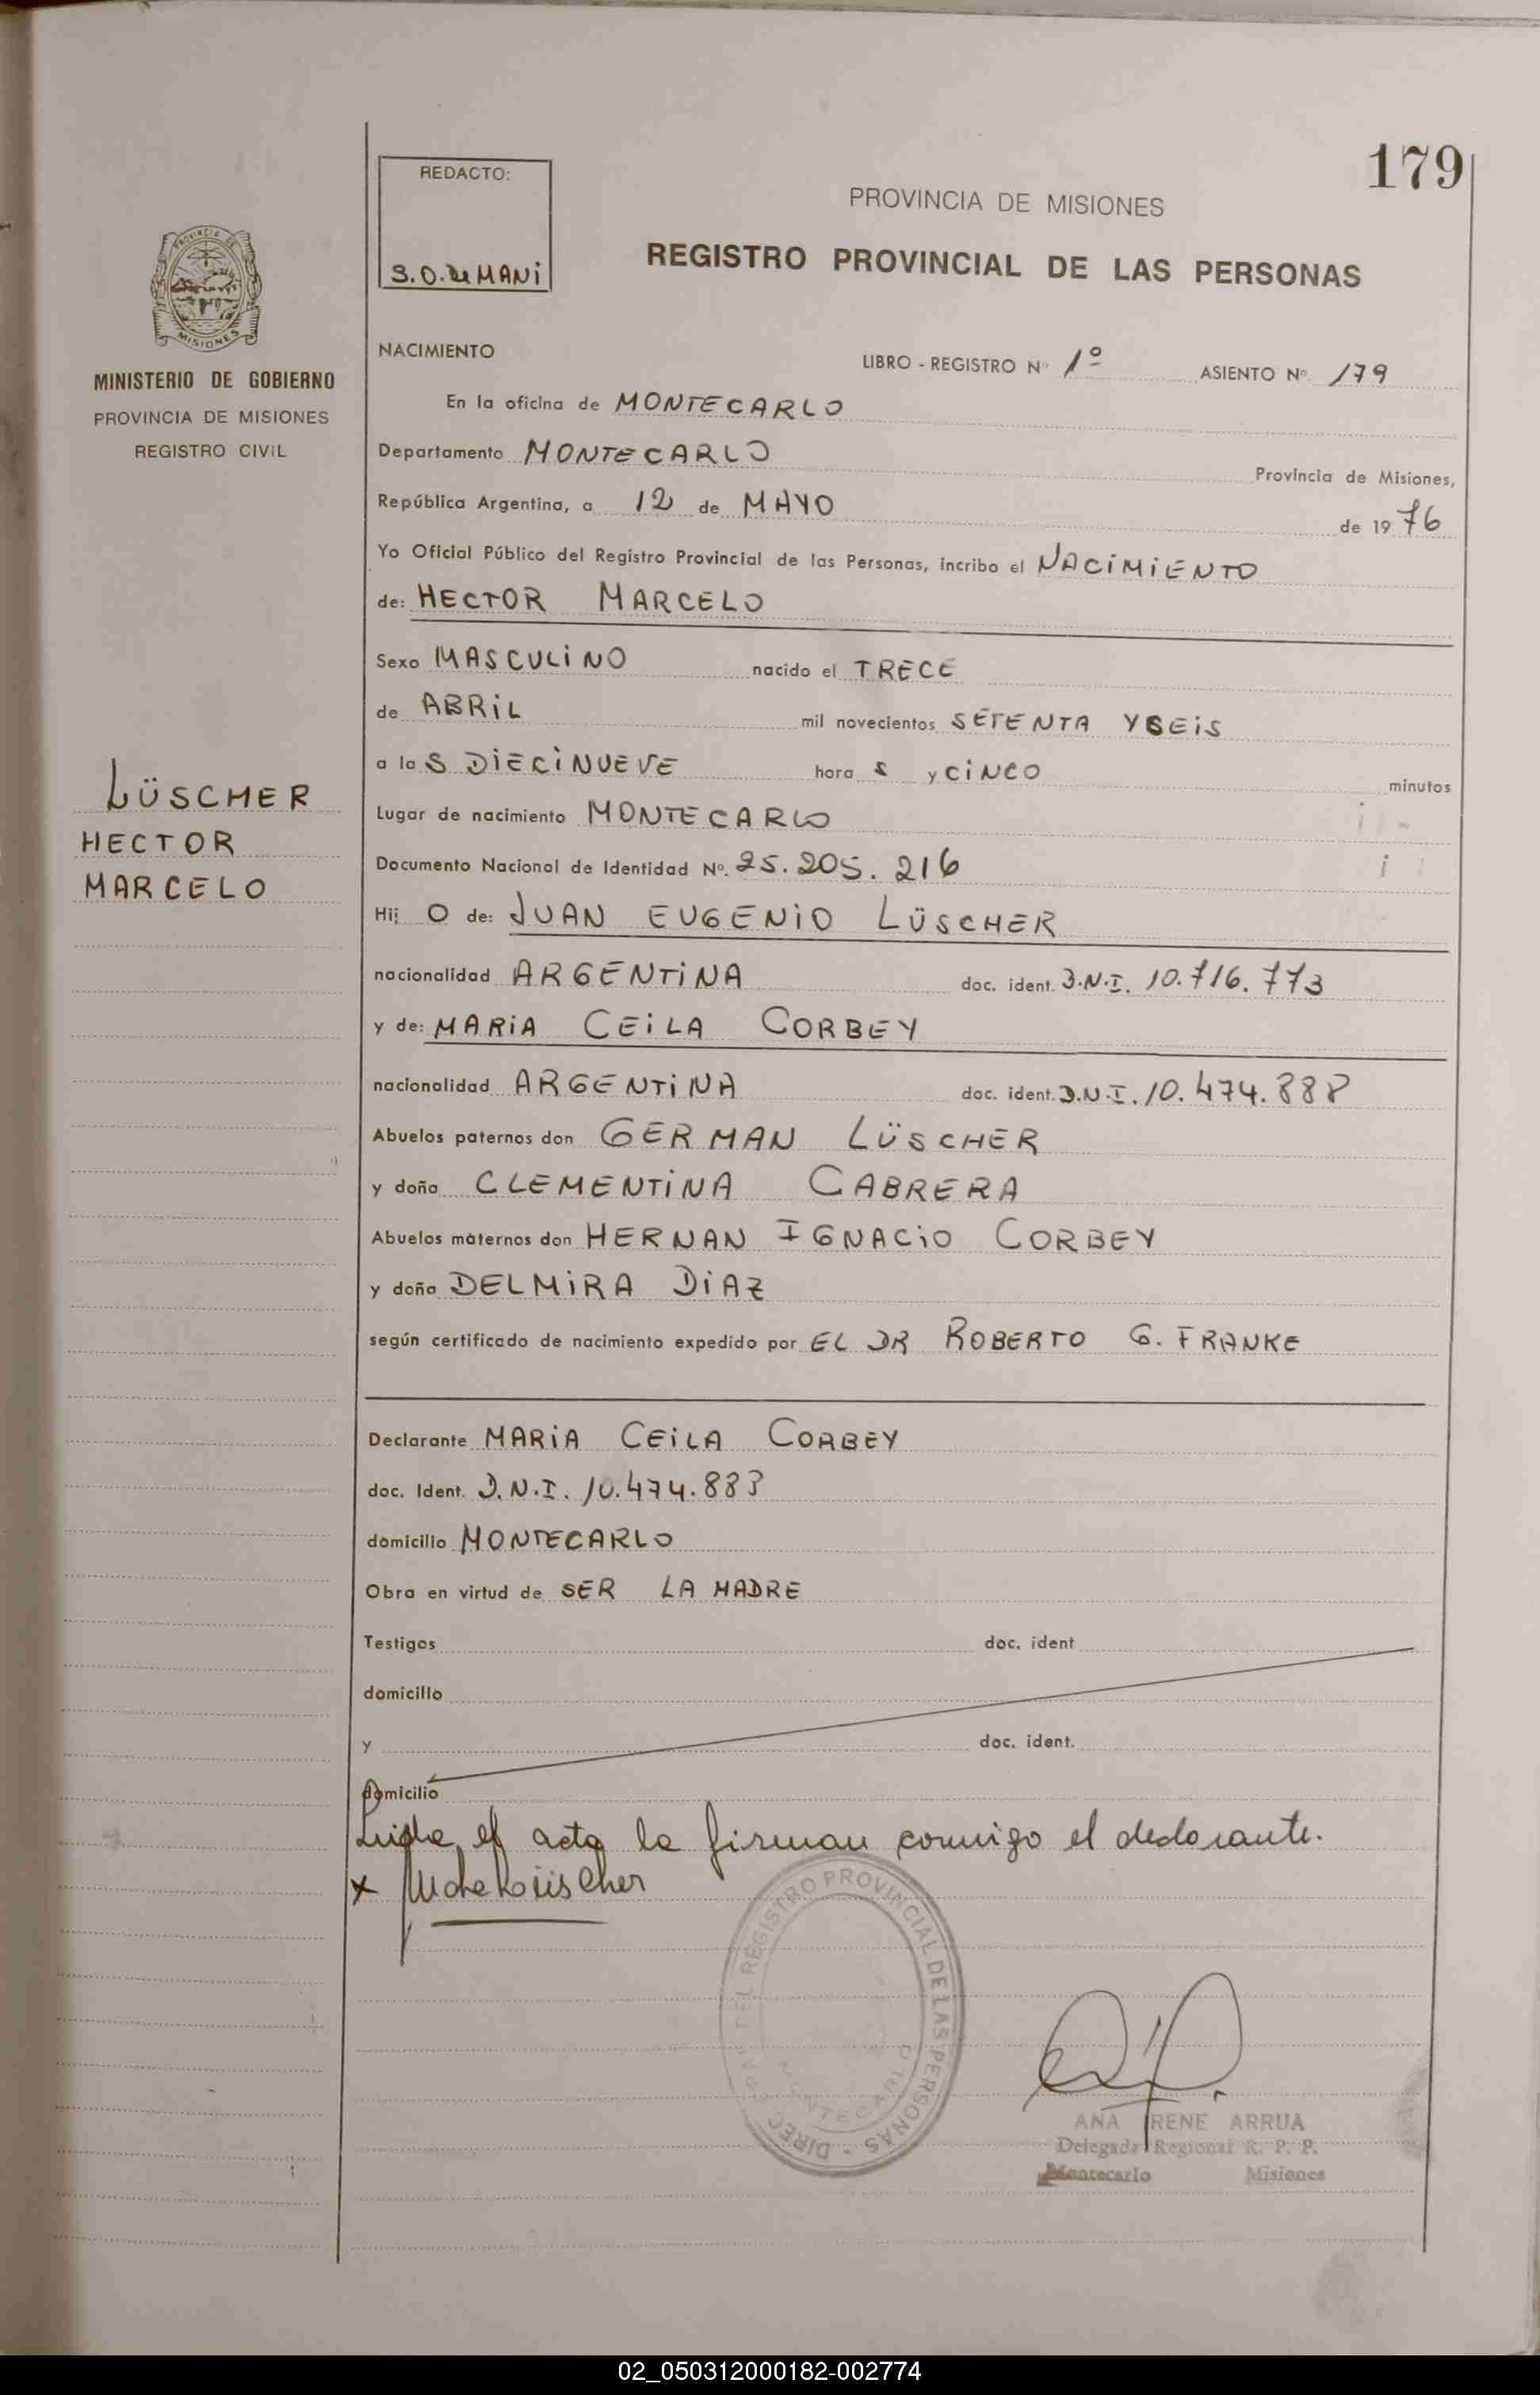 179
REDACTO:
S.O. de MANI
PROVINCIA DE MISIONES
REGISTRO PROVINCIAL DE LAS PERSONAS
PROVINCIA DE
MISIONES
MINISTERIO DE GOBIERNO
PROVINCIA DE MISIONES
REGISTRO CIVIL
LÜSCHER
HECTOR
MARCELO
NACIMIENTO
LIBRO - REGISTRO Nº 1º ASIENTO Nº 179
En la oficina de MONTECARLO
Departamento MONTECARLO Provincia de Misiones,
República Argentina, a 12 de MAYO de 1976
Yo Oficial Público del Registro Provincial de las Personas, incribo el NACIMIENTO
de: HECTOR MARCELO
Sexo MASCULINO nacido el TRECE
de ABRIL mil novecientos SETENTA Y SEIS
a las DIECINUEVE horas y CINCO minutos
Lugar de nacimiento MONTECARLO
Documento Nacional de Identidad Nº. 25.205.216
Hijo de: JUAN EUGENIO LÜSCHER
nacionalidad ARGENTINA doc. ident. D.N.I. 10.716.773
y de: MARIA CEILA CORBEY
nacionalidad ARGENTINA doc. ident. D.N.I. 10.474.888
Abuelos paternos don GERMAN LÜSCHER
y doña CLEMENTINA CABRERA
Abuelos maternos don HERNAN IGNACIO CORBEY
y doña DELMIRA DIAZ
según certificado de nacimiento expedido por EL DR ROBERTO G. FRANKE
Declarante MARIA CEILA CORBEY
doc. Ident. D.N.I. 10.474.883
domicilio MONTECARLO
Obra en virtud de SER LA MADRE
Testigos doc. ident
domicilio
y doc. ident.
domicilio
Leida el acta la firman conmigo el declarante.
x
DIRECCION DEL REGISTRO PROVINCIAL DE LAS PERSONAS -
MONTECARLO
ANA IRENE ARRUA
Delegada Regional R. P. P.
Montecarlo Misiones
02_050312000182-002774